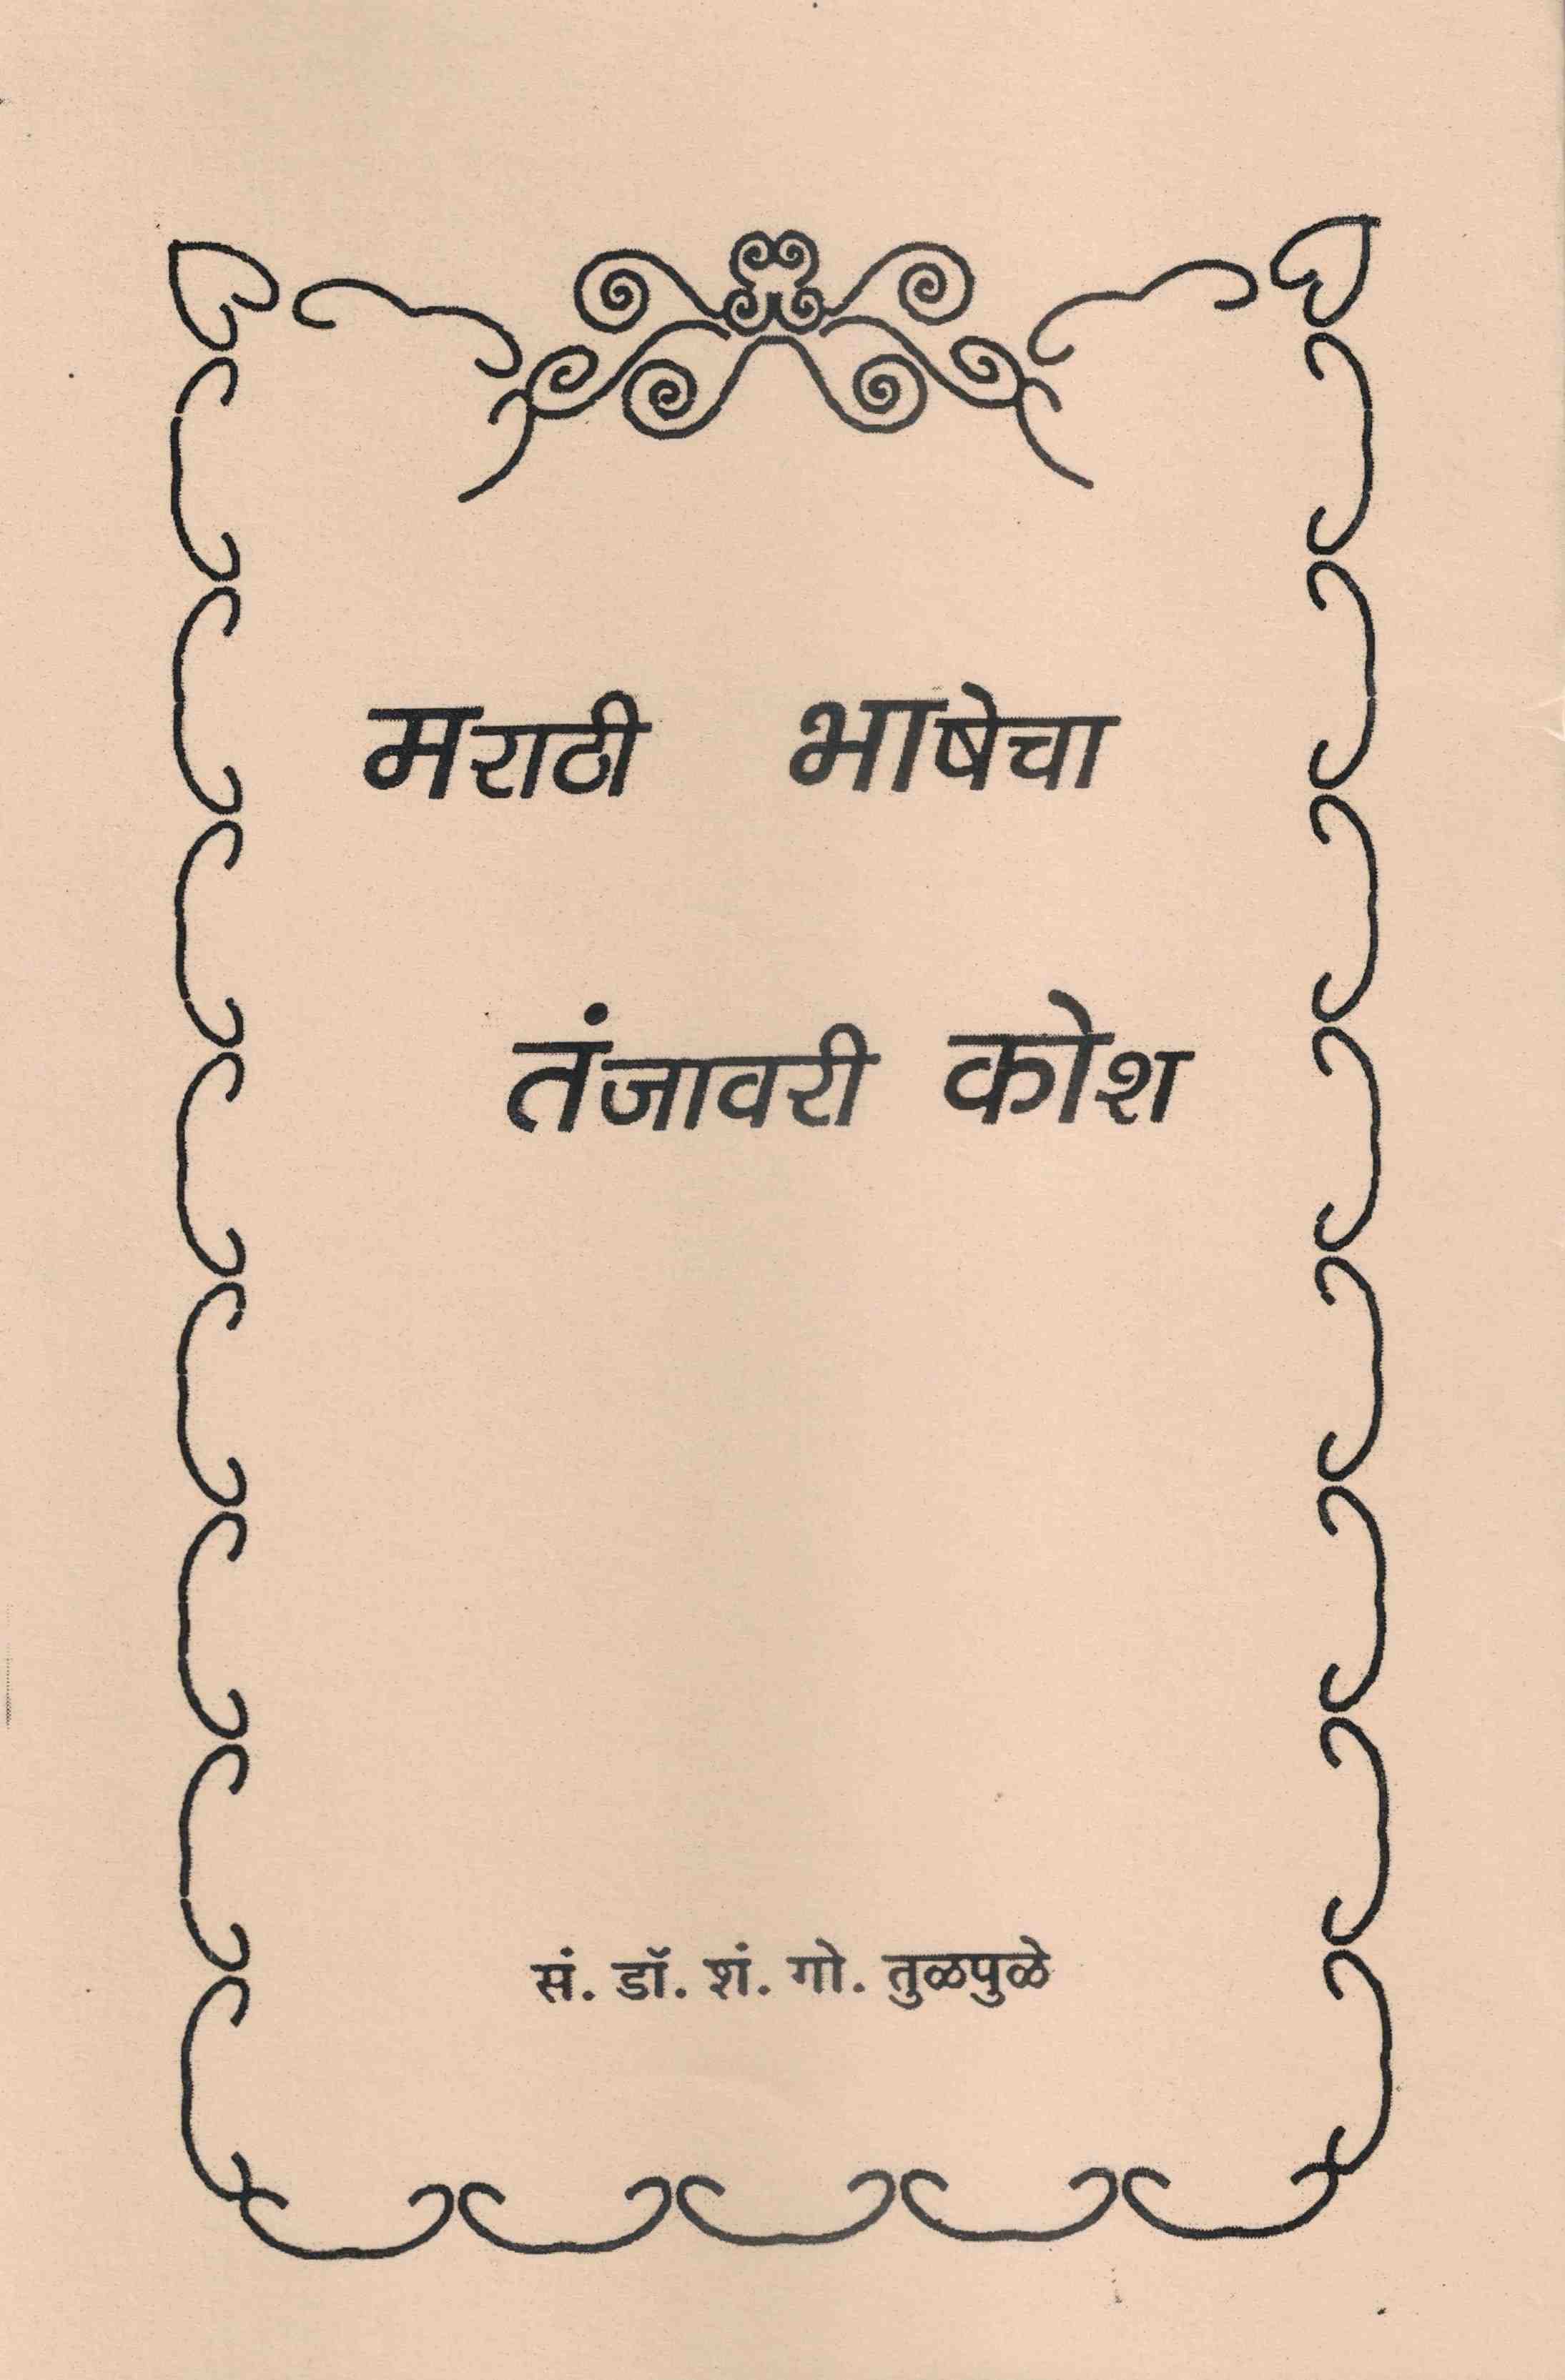 मराठी भाषेचा
तंजावरी कोश
सं. डॉ. शं. गो. तुळपुळे